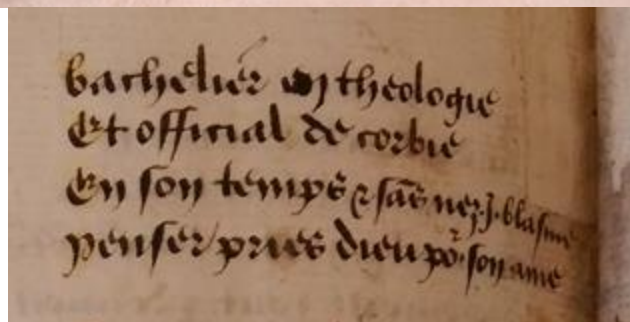 bachelier en theologie
Et official de corbie
En son temps & sãs nez .j. blasme
penser pries dieu po.r son ame